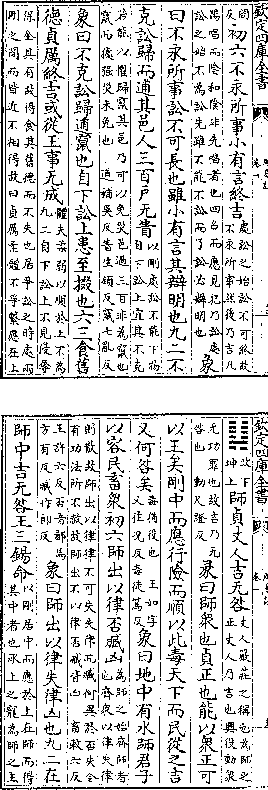 欽定四庫全書
間反初六不永所事小有言終吉處訟之始訟不可終故不永所事然後乃吉凡
陽唱而陰和陰非先唱者也四召而應見犯乃訟處訟之始不為訟先雖不能不訟而了訟必辯明也象
曰不永所事訟不可長也雖小有言其辯明也九二不
克訟歸而逋其邑人三百戶无眚以剛處訟不能下物自下訟上宜其不克
若能以懼歸竄其邑乃可以免災邑過三百非為竄也竄而據強災未免也逋補吳反眚生領反竄七亂反
象曰不克訟歸逋竄也自下訟上患至掇也六三食舊
德貞厲終吉或從王事无成體夫柔弱以順於上不為九二自下訟上不見侵奪
保全其有故得食其舊德而不失也居爭訟之時處兩剛之間而皆近不相得故曰貞厲柔體不爭繫應在上
欽定四庫全書
䷆坎下坤上師貞丈人吉无咎丈人嚴莊之稱也為師之正丈人乃吉也興役動眾
无功罪也故吉乃无咎也尺證反象曰師眾也貞正也能以眾正可
以王矣剛中而應行險而順以此毒天下而民從之吉
又何咎矣毒猶役也王如字又往況反毒徒篤反象曰地中有水師君子
以容民畜眾初六師出以律否臧凶為師之始齊師者也齊眾以律失律
則散故師出以律律不可失失律而臧何異於否失令有功法所不赦故師出不以律否臧皆凶畜敕六反
王許六反否音鄙方有反臧作郎反象曰師出以律失律凶也九二在
師中吉无咎王三錫命以剛居中而應於上在師而得其中者也承上之寵為師之主